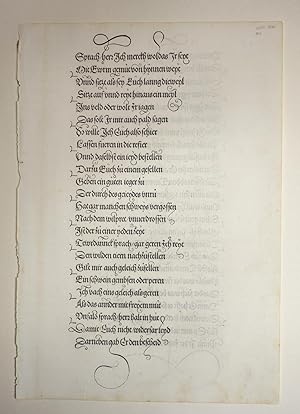 Sprach herr Ich mercth woldas Ir seyt
Mit Ewrm gemüt von hynnen weyt
Vnnd sitzt als sey Euch lanng dieweyl
Sitzt auf vnnd reyt hinaus ein meyl
Ins veld oder wolt Ir iagen
Das solt Ir mir auch pald sagen
So wille Ich Euch also schier
Lassen fueren in die refier
Vnnd daselbst ein ieyd bestellen
Darzu Euch zu einem gesellen
Geben ein guten ieger zu
Der durch des geieydes vnru
Hat gar manchen schweys vergossen
Nach dem wilpret vnuerdrossen
Ist er zu einer yeden zeyt
Tewrdannck sprach gar geren Ich reyt
Den wilden tieren nachzustellen
Gilt mir auch geleich zufellen
Ein schwein gembsen oder peren
Ich vach eins geleich als geren
Als das annder mit freyem müt
Vnfalo sprach herr halt in hut
Damit Euch nicht widerfar leyd
Darneben gab Er den bescheid